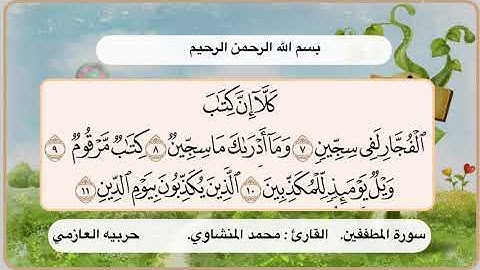 بسم الله الرحمن الرحيم
كَلَّآ إِنَّ كِتَٰبَ
ٱلْفُجَّارِ لَفِى سِجِّينٍ ٧ وَمَآ أَدْرَىٰكَ مَا سِجِّينٌ ٨ كِتَٰبٌ مَّرْقُومٌ ٩
وَيْلٌ يَوْمَئِذٍ لِّلْمُكَذِّبِينَ ١٠ ٱلَّذِينَ يُكَذِّبُونَ بِيَوْمِ ٱلدِّينِ ١١
سورة المطففين. القارئ : محمد المنشاوي. حربيه العازمي